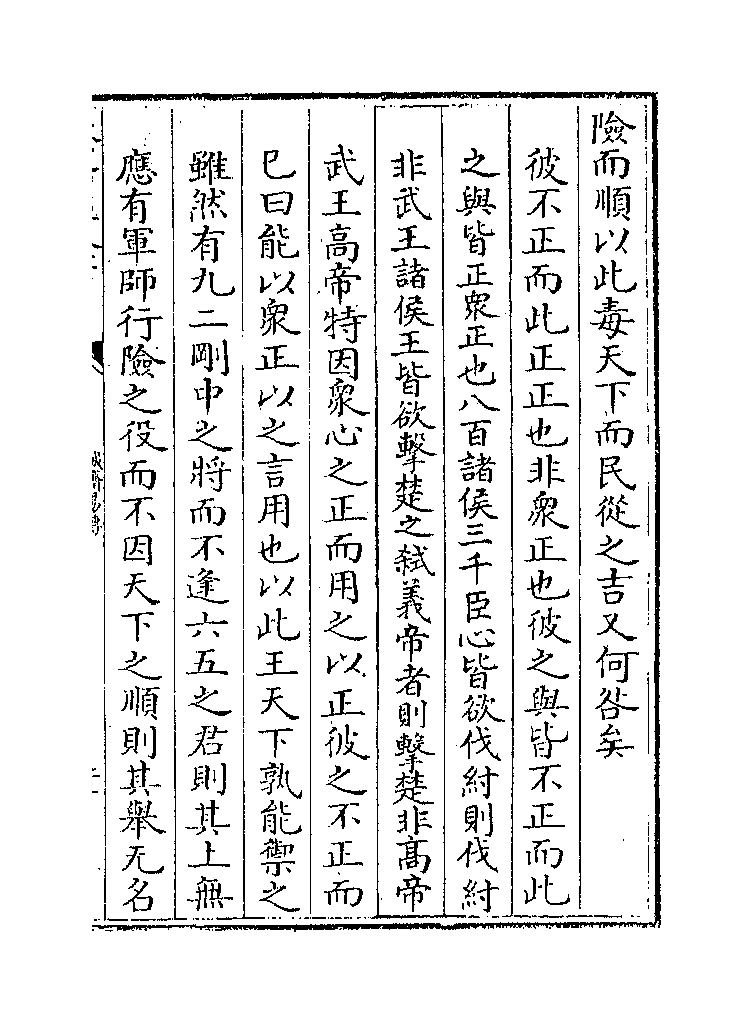 險而順以此毒天下而民從之吉又何咎矣
彼不正而此正正也非衆正也彼之與皆不正而此
之與皆正衆正也八百諸侯三千臣心皆欲伐紂則伐紂
非武王諸侯王皆欲擊楚之弑義帝者則擊楚非髙帝
武王高帝特因衆心之正而用之以正彼之不正而
已曰能以衆正以之言用也以此王天下孰能禦之
雖然有九二剛中之將而不逢六五之君則其上無
應有軍師行險之役而不因天下之順則其舉无名
誠齋易傳